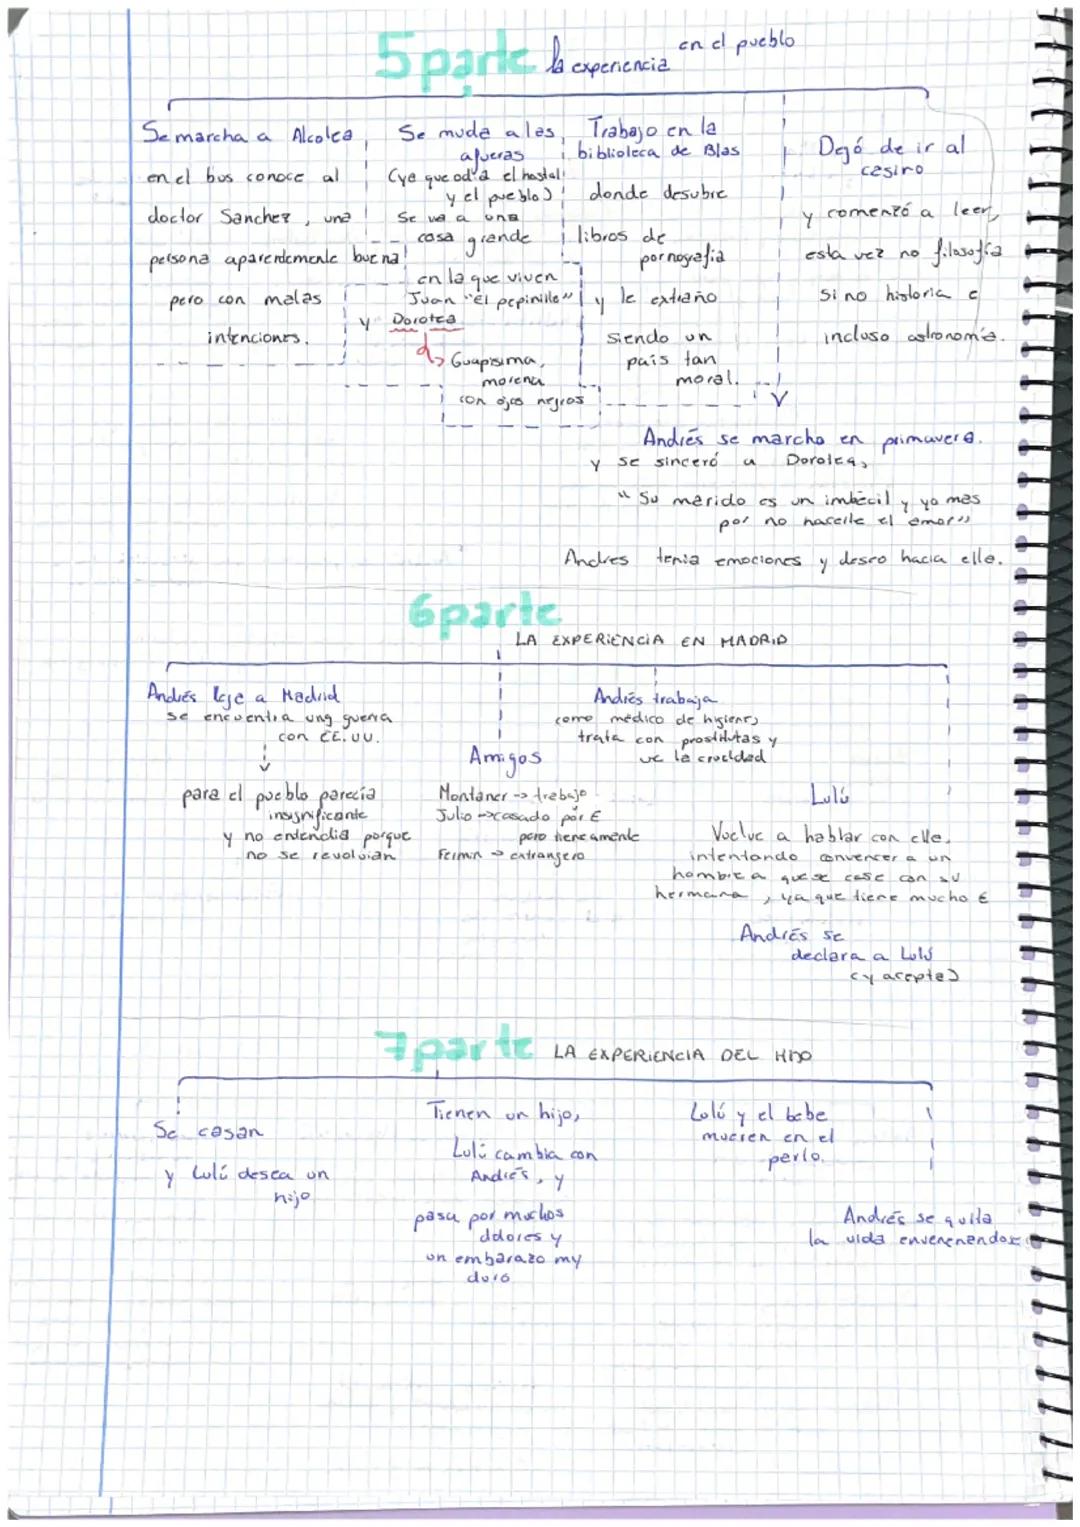 5 parte la experiencia en el pueblo
Se marcha a Alcolea
en el bus conoce al
doctor Sanchez, una
persona aparentemente buena
pero con malas
intenciones.
Se muda a las
afueras
(ya que odia el hostal
y el pueblo)
Se va a una
casa grande
en la que viven
Juan "El pepinillo"
y Dorotea
Guapisima,
morena
con ojos negros
Trabajo en la
biblioteca de Blas
donde desubre
libros de
pornografia
y le extraño
siendo un
pais tan
moral.
Dejó de ir al
casino
y comenzó a leer,
esta vez no filosofía
sino historia e
incluso astronomía.
Andrés se marcho en primavera.
y se sinceró a Dorotea,
"Su marido es un imbécil y yo mas
por no hacerle el amor"
Andres tenia emociones y deseo hacia ella.
6 parte
LA EXPERIENCIA EN MADRID
Andrés llega a Madrid
se encuentra una guerra
con EE.UU.
para el pueblo parecía
insignificante
y no entendia porque
no se revolvian
Amigos
Montaner -> trabajo
Julio -> casado por €
pero tiene amante
Fermin -> extrangero
Andrés trabaja
como médico de higiene,
trata con prostitutas y
ve la crueldad
Lulú
Vuelve a hablar con ella,
intentando convencer a un
hombre a que se case con su
hermana, ya que tiene mucho €
Andrés se
declara a Lulú
(y acepta)
7 parte LA EXPERIENCIA DEL HIJO
Se casan
y Lulú desea un
hijo
Tienen un hijo,
Lulú cambia con
Andrés, y
pasa por muchos
dolores y
un embarazo my
duro
Lulú y el bebe
mueren en el
parto.
Andrés se quita
la vida envenenandose